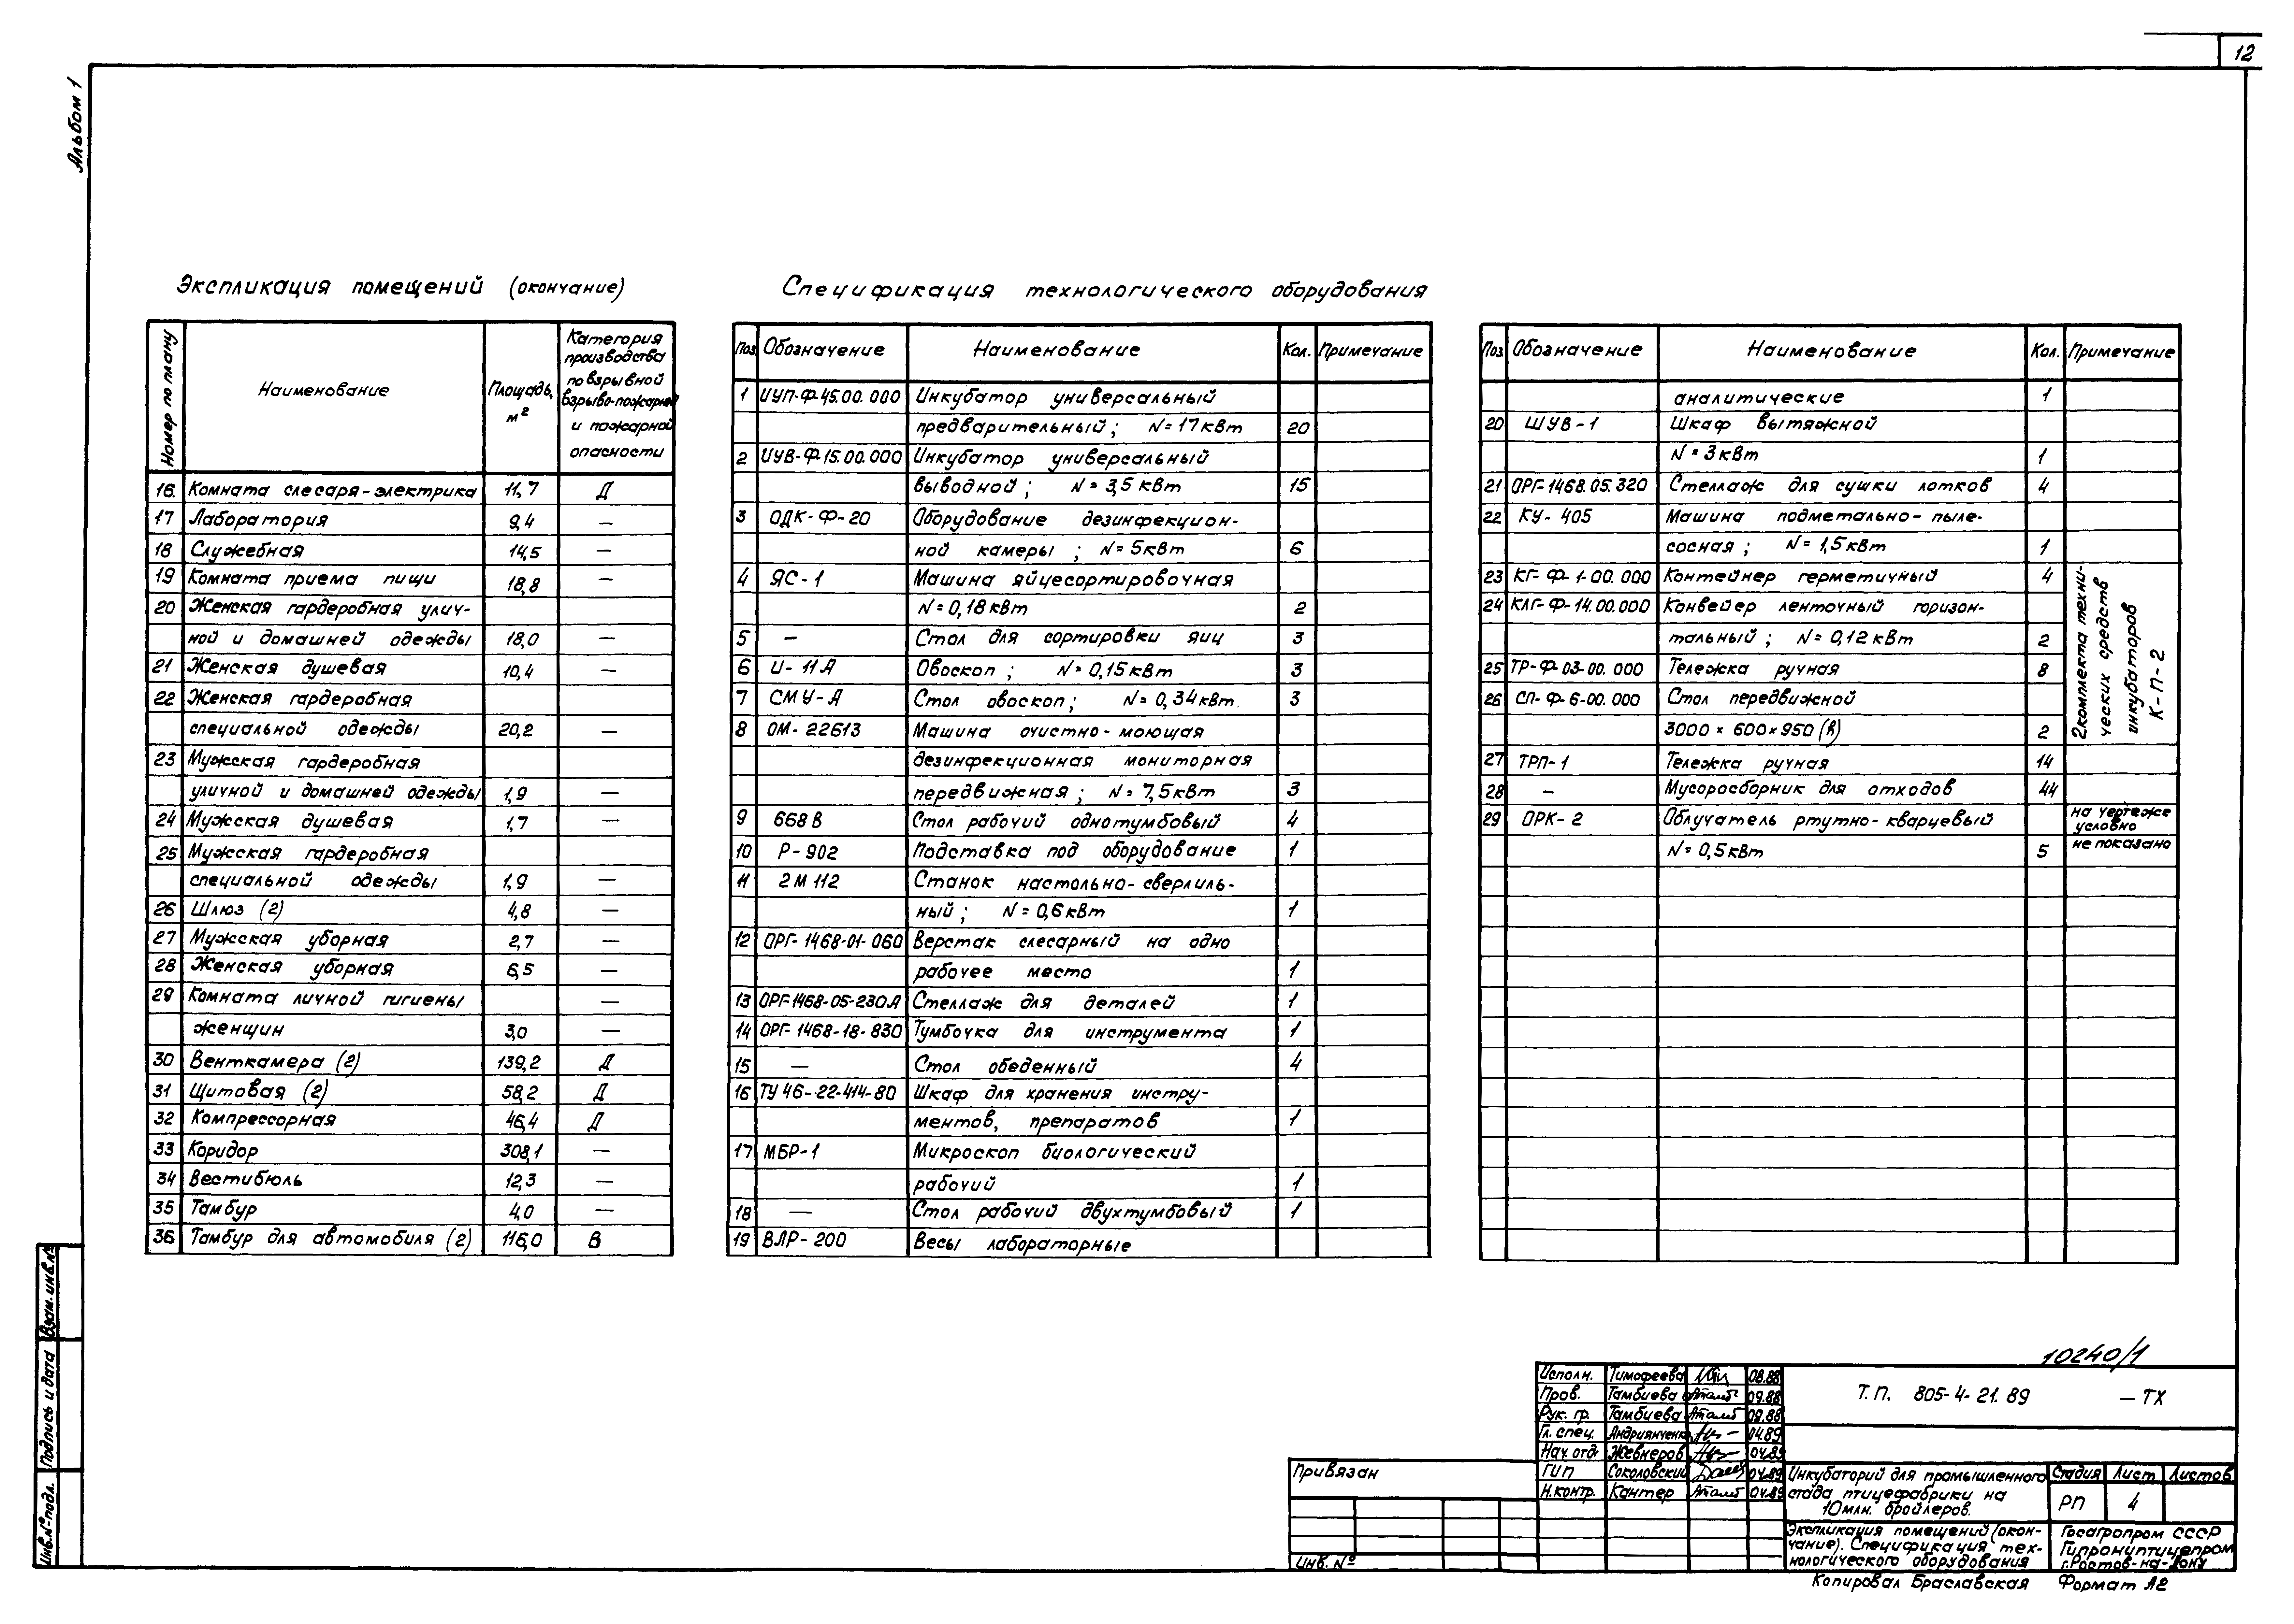 12
Альбом 1
Экспликация помещений (окончание)
Номер по плану
Наименование
Площадь, м²
Категория
производства
по взрывной
взрыво-пожарной
и пожарной
опасности
16. Комната слесаря-электрика 11,7 Д
17 Лаборатория 9,4 —
18 Служебная 14,5 —
19 Комната приема пищи 18,8 —
20 Женская гардеробная улич-
ной и домашней одежды 18,0 —
21 Женская душевая 10,4 —
22 Женская гардеробная
специальной одежды 20,2 —
23 Мужская гардеробная
уличной и домашней одежды 1,9 —
24 Мужская душевая 1,7 —
25 Мужская гардеробная
специальной одежды 1,9 —
26 Шлюз (2) 4,8 —
27 Мужская уборная 2,7 —
28 Женская уборная 6,5 —
29 Комната личной гигиены —
женщин 3,0 —
30 Венткамера (2) 139,2 Д
31 Щитовая (2) 58,2 Д
32 Компрессорная 46,4 Д
33 Коридор 308,1 —
34 Вестибюль 12,3 —
35 Тамбур 4,0 —
36 Тамбур для автомобиля (2) 116,0 В
Спецификация технологического оборудования
Поз. Обозначение Наименование Кол. Примечание
1 ИУП-Ф-45.00.000 Инкубатор универсальный
предварительный; N=17кВт 20
2 ИУВ-Ф-15.00.000 Инкубатор универсальный
выводной; N=3,5 кВт 15
3 ОДК-Ф-20 Оборудование дезинфекцион-
ной камеры; N=5кВт 6
4 ЯС-1 Машина яйцесортировочная
N=0,18кВт 2
5 — Стол для сортировки яиц 3
6 И-11А Овоскоп; N=0,15кВт 3
7 СМУ-А Стол овоскоп; N=0,34кВт. 3
8 ОМ-22613 Машина очистно-моющая
дезинфекционная мониторная
передвижная; N=7,5кВт 3
9 668В Стол рабочий однотумбовый 4
10 Р-902 Подставка под оборудование 1
11 2М112 Станок настольно-сверлиль-
ный; N=0,6кВт 1
12 ОРГ-1468-01-060 Верстак слесарный на одно
рабочее место 1
13 ОРГ-1468-05-230А Стеллаж для деталей 1
14 ОРГ-1468-18-830 Тумбочка для инструмента 1
15 — Стол обеденный 4
16 ТУ 46-22-414-80 Шкаф для хранения инстру-
ментов, препаратов 1
17 МБР-1 Микроскоп биологический
рабочий 1
18 — Стол рабочий двухтумбовый 1
19 ВЛР-200 Весы лабораторные
Поз Обозначение Наименование Кол. Примечание
аналитические 1
20 ШУВ-1 Шкаф вытяжной
N=3кВт 1
21 ОРГ-1468.05.320 Стеллаж для сушки лотков 4
22 КУ-405 Машина подметально-пыле-
сосная; N=1,5кВт 1
23 КГ-Ф-1-00.000 Контейнер герметичный 4
24 КЛГ-Ф-14.00.000 Конвейер ленточный горизон-
тальный; N=0,12кВт 2
25 ТР-Ф-03-00.000 Тележка ручная 8
26 СП-Ф-6-00.000 Стол передвижной
3000×600×950(h) 2
2комплекта техни-
ческих средств
инкубаторов
К-П-2
27 ТРП-1 Тележка ручная 14
28 — Мусоросборник для отходов 44
29 ОРК-2 Облучатель ртутно-кварцевый на чертеже
условно
N=0,5кВт 5 не показано
Взам. инв.№
Подпись и дата
Инв.№подл.
10240/1
Исполн. Тимофеева 08.88
Пров. Тамбиева 09.88
Рук. гр. Тамбиева 09.88
Гл. спец. Андриянченко 04.89
Нач. отд. Жевнеров 04.89
ГИП Соколовский 04.89
Н.контр. Кантер 04.89
Т.П. 805-4-21.89 —ТХ
Привязан
Инв. №
Инкубаторий для промышленного
стада птицефабрики на
10млн. бройлеров.
Стадия Лист Листов
РП 4
Экспликация помещений (окон-
чание). Спецификация тех-
нологического оборудования
Госагропром СССР
Гипрониптицепром
г.Ростов-на-Дону
Копировал Браславская Формат А2